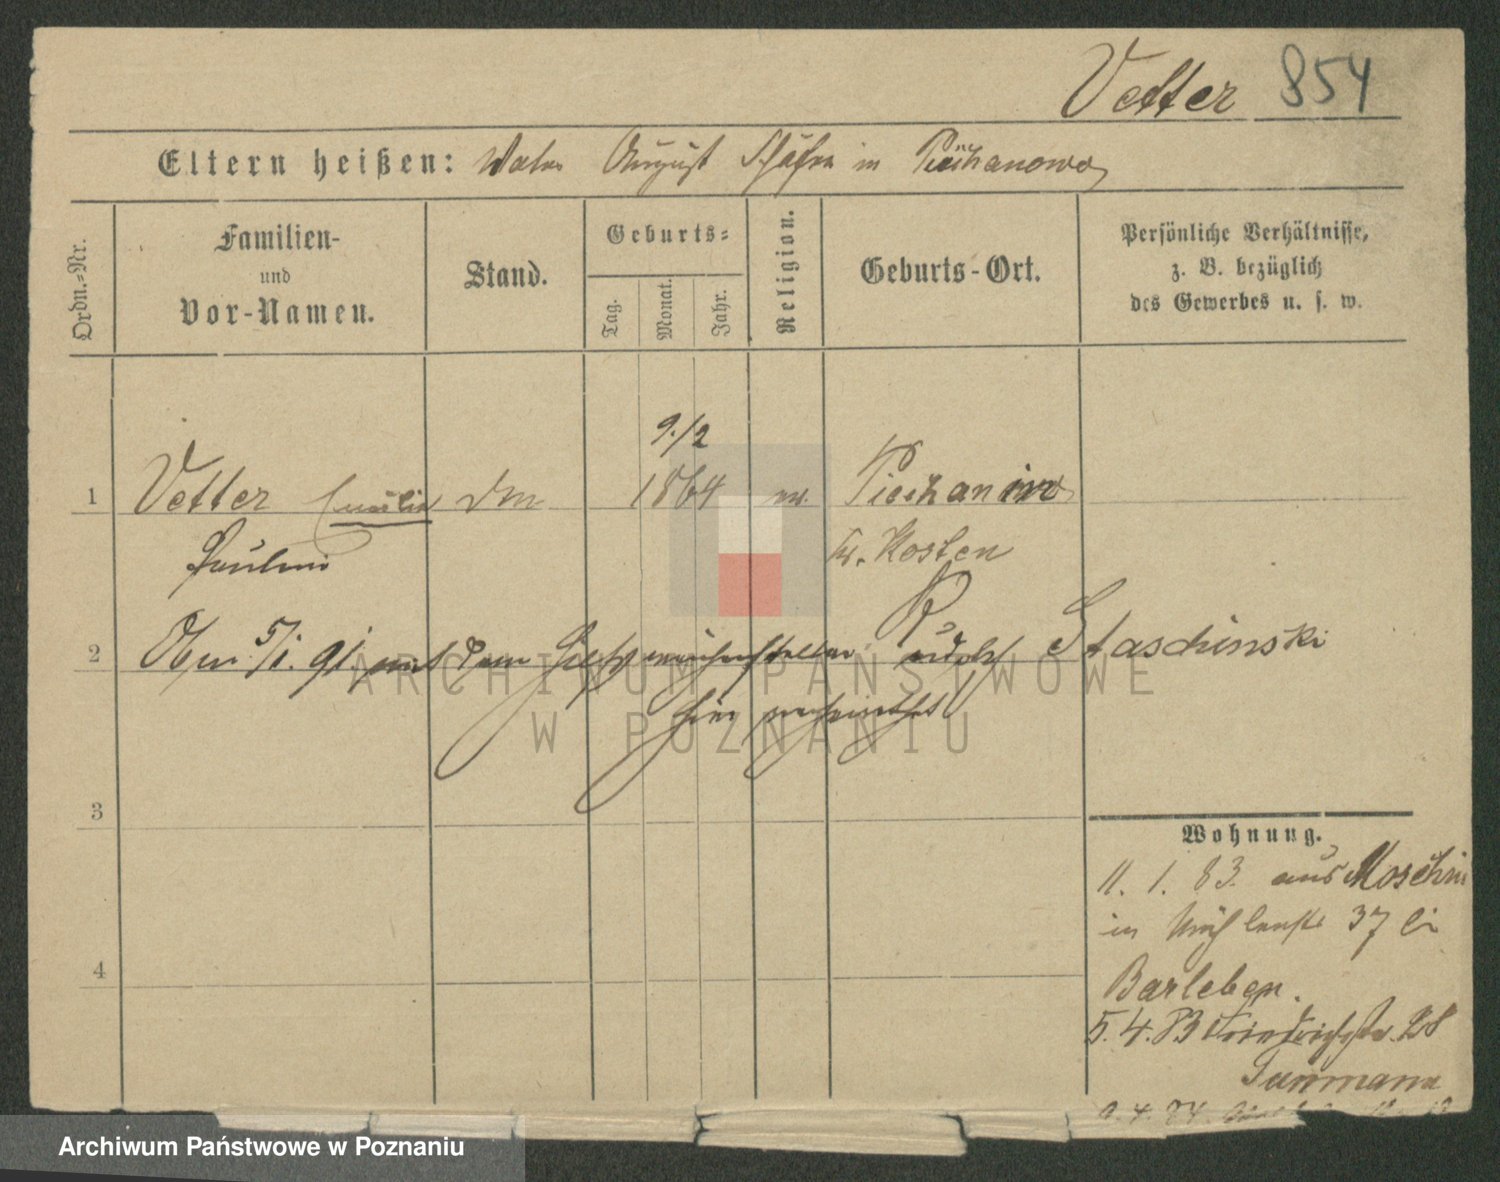 Vetter 854
Eltern heißen: Vater August Schäfer in Piechanowo
Ordn.-Nr.
Familien-
und
Vor-Namen.
Stand.
Geburts-
Tag.
Monat.
Jahr.
Religion.
Geburts-Ort.
Persönliche Verhältnisse,
z. B. bezüglich
des Gewerbes u. s. w.
9./2
1 Vetter Emilie 1864 Piechanin
Pauline Kr. Kosten
2 5/1. 91 mit dem Rudolf Staschinski
hier verheirathet
3
4
Wohnung.
11. 1. 83. aus Moschin
in Mühlenstr 37 bei
Barleben.
5. 4. 83 Friedrichstr. 28
9. 4. 84.
ARCHIWUM PAŃSTWOWE
W POZNANIU
Archiwum Państwowe w Poznaniu